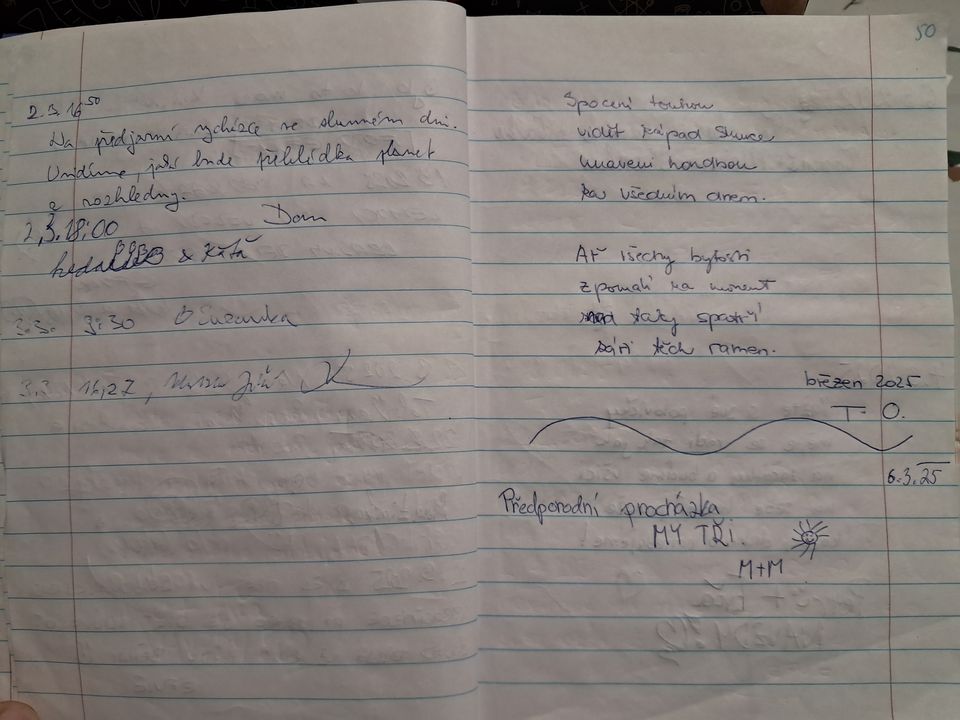 2.3. 16⁵⁰
Na předjarní vycházce ve slunném dni.
Uvidíme, jaká bude přehlídka planet
z rozhledny.
Dan
2.3. 18:00
& Káťa
3.3. 3:30 Zuzanka
3.3 16,27,
50
Spoceni touhou
vidět západ Slunce,
unaveni honbou
za všedním dnem.
Ať všechny bytosti
zpomalí na moment
taky spatří
záři těch ramen.
březen 2025
T. O.
6.3.25
Předporodní procházka
MY TŘI.
M+M